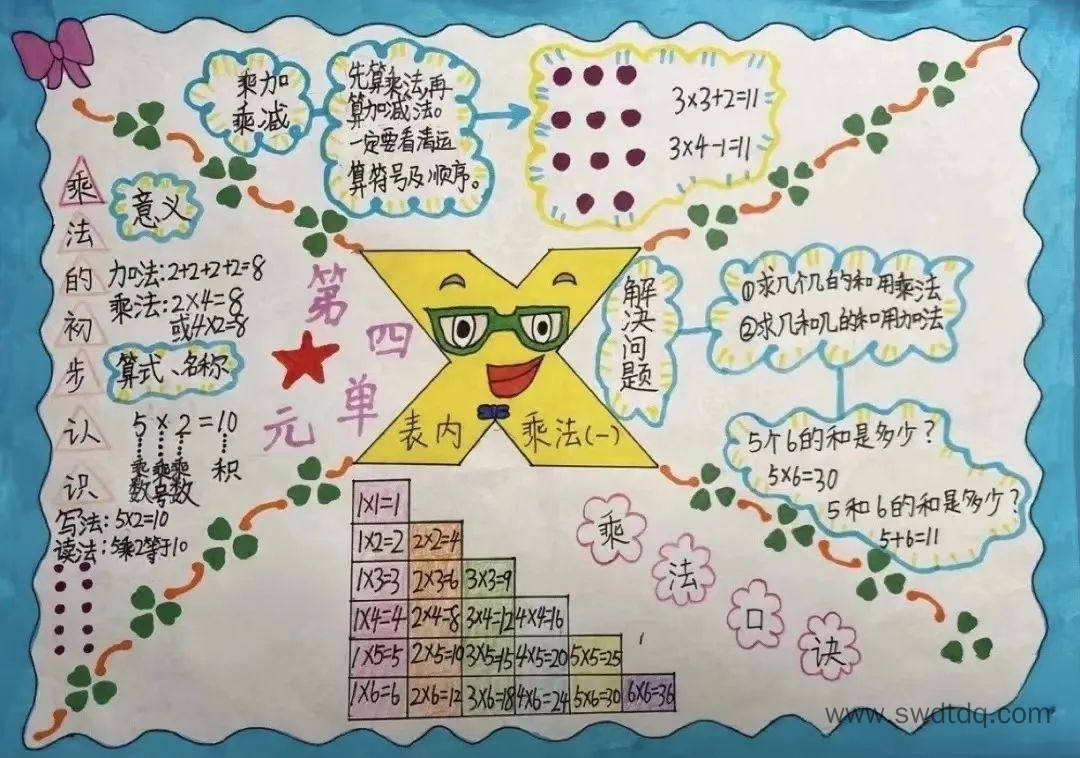 乘加
乘减
先算乘法,再
算加减法。
一定要看清运
算符号及顺序。
3×3+2=11
3×4-1=11
乘
法
的
初
步
认
识
意义
加法:2+2+2+2=8
乘法:2×4=8
或4×2=8
算式、名称
5×2=10
乘 乘 乘 积
数 号 数
写法:5×2=10
读法:5乘2等于10
第
四
单
元
表内 乘法(一)
解
决
问
题
①求几个几的和用乘法
②求几和几的和用加法
5个6的和是多少?
5×6=30
5和6的和是多少?
5+6=11
1×1=1
1×2=2 2×2=4
1×3=3 2×3=6 3×3=9
1×4=4 2×4=8 3×4=12 4×4=16
1×5=5 2×5=10 3×5=15 4×5=20 5×5=25
1×6=6 2×6=12 3×6=18 4×6=24 5×6=30 6×6=36
乘
法
口
诀
www.swdtdq.com